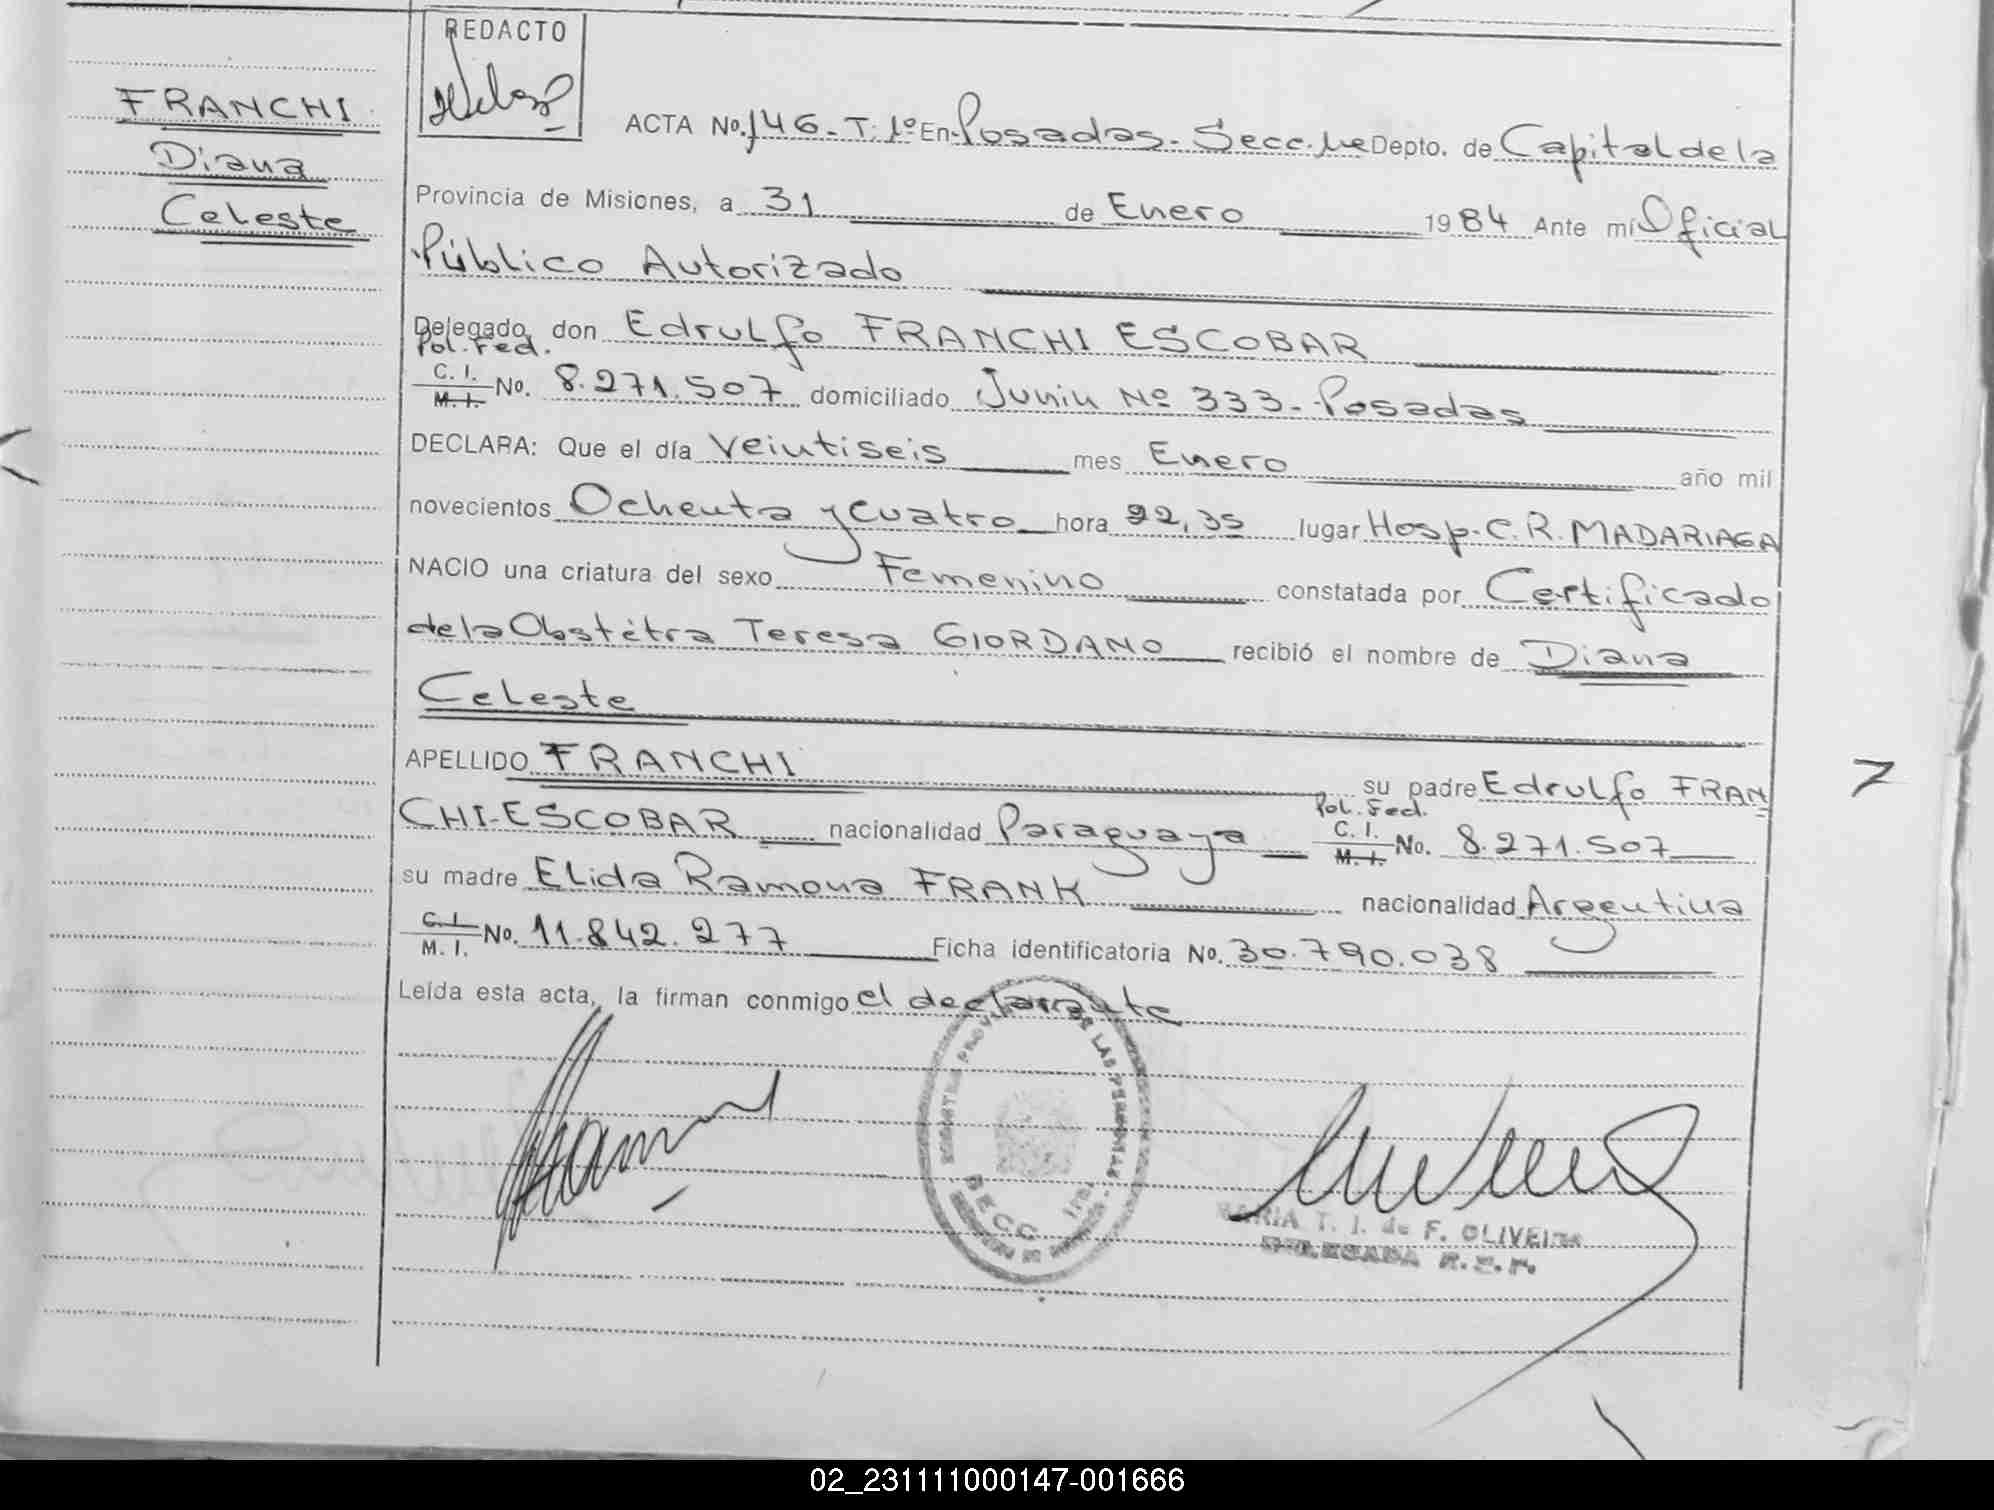 REDACTO
FRANCHI
Diana
Celeste
ACTA No. 146-T:1º En Posadas-Secc.1re Depto. de Capital de la
Provincia de Misiones, a 31 de Enero 1984 Ante mí Oficial
Público Autorizado
Delegado, don Edrulfo FRANCHI ESCOBAR
Pol.Fed.
C. I.
M. I. No. 8.271.507 domiciliado Junin Nº 333-Posadas
DECLARA: Que el día Veintiseis mes Enero año mil
novecientos Ochenta y cuatro hora 22,35 lugar Hosp.C.R.MADARIAGA
NACIO una criatura del sexo Femenino constatada por Certificado
de la Obstétra Teresa GIORDANO recibió el nombre de Diana
Celeste
APELLIDO FRANCHI su padre Edrulfo FRAN
CHI-ESCOBAR nacionalidad Paraguaya Pol.Fed. C. I. M. I. No. 8.271.507
su madre Elida Ramona FRANK nacionalidad Argentina
C. I.
M. I. No. 11.842.277 Ficha identificatoria No. 30.790.038
Leída esta acta, la firman conmigo el declarante
LAS PERSONAS
SECC 1ra.
MARIA T. I. de F. OLIVEIRA
DELEGADA R.E.P.
02_231111000147-001666